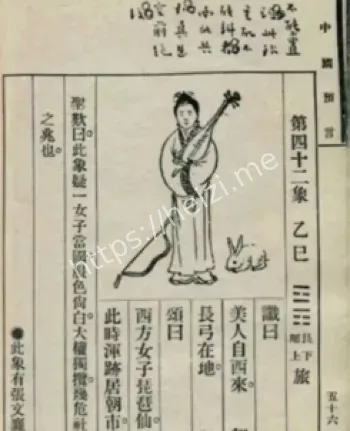 中國預言
五十六
第四十二象 乙巳 ䷷ 艮下離上 旅
讖曰
美人自西來
長弓在地
頌曰
西方女子琵琶仙
此時渾跡居朝市
聖歎曰。此象疑一女子當國。服色尚白。大權獨攬。幾危社
之兆也。
●此象有張文襄
https://heizi.me